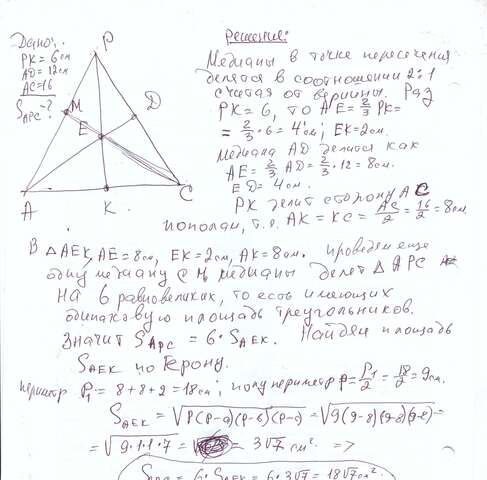 Дано:
PK = 6см
AD = 12см
AC = 16
S APC - ?
P
M
D
E
A
K
C
Решение:
Медианы в точке пересечения
делятся в соотношении 2:1
считая от вершины. Раз
PK = 6, то AE = 2/3 PK =
= 2/3 · 6 = 4см; EK = 2см.
Медиана AD делится как
AE = 2/3 AD = 2/3 · 12 = 8см.
ED = 4см.
PK делит сторону AC
пополам, т.е. AK = KC = AC/2 = 16/2 = 8см
В △AEK, AE = 8см, EK = 2см, AK = 8см. проведем еще
одну медиану CM, медианы делят △APC
на 6 равновеликих, то есть имеющих
одинаковую площадь треугольников.
Значит S APC = 6 · S AEK. Найдем площадь
S AEK по Герону.
периметр P₁ = 8 + 8 + 2 = 18см; полупериметр p = P₁/2 = 18/2 = 9см.
S AEK = √P(P-a)(P-b)(P-c) = √9(9-8)(9-8)(9-2) =
= √9·1·1·7 = 3√7 см². =>
S APC = 6 · S AEK = 6 · 3√7 = 18√7 см².